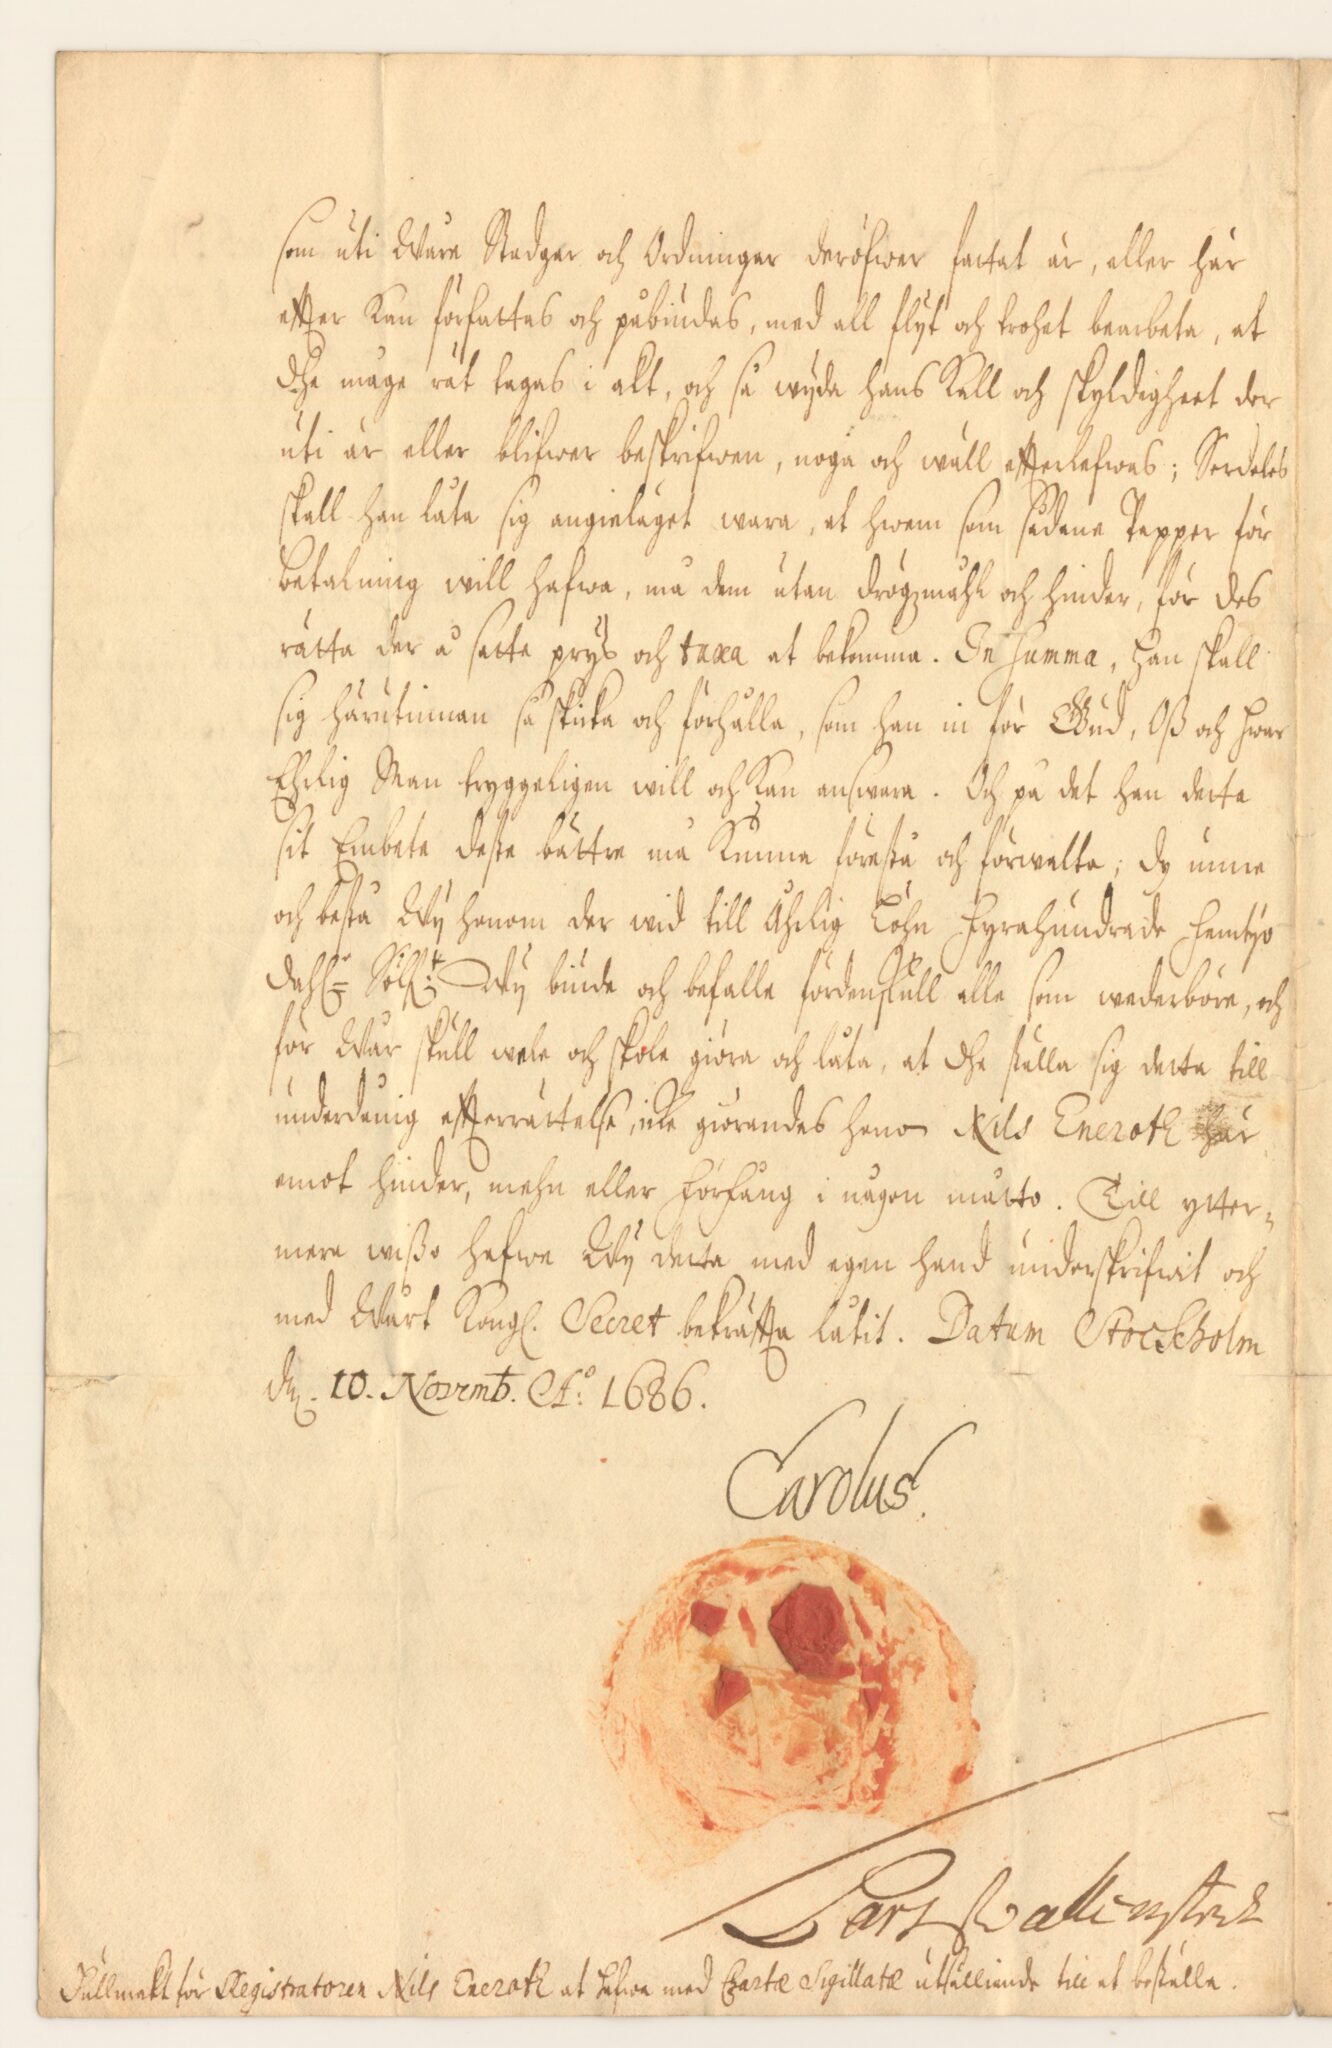 som uti Wåre Stadgar och Ordningar deröfwer fattat är, eller här
effter kan författas och påbiudas, med all flyt och trohet bearbeta, at
dhe måge rät tagas i akt, och så wyda hans Kall och skyldigheet der
uti är eller blifwer beskrifwen, noga och wäll effterlefwas; Serdeles
skall han låta sig angieläget wara, at hwem som sådane Papper för
betalning will hafwa, må dem utan drögzmåhl och hinder, för des
rätta der å satte prys och taxa at bekomma. In Summa, han skall
sig härutinnan så skicka och förhålla, som han in för Gud, Oß och hwar
Ehrlig Man tryggeligen will och kan answara. Och på det han detta
sit Embete deste bättre må kunna förestå och förwalta; dy unne
och bestå Wy honom der wid till Åhrlig Löhn Fyrahundrade femtyo
Dahl:r Sölf:t Wy biude och befalle fördenskull alle som wederböre, och
för Wår skull wele och skole giöra och låta, at dhe ställa sig detta till
underdånig effterrättelse, icke giörandes honom Nils Eneroth här
emot hinder, mehn eller förfång i någon måtto. Till ytter-
mera wißo hafwe Wy detta med egen hand underskrifwit och
med Wårt Kongl. Secret bekräffta låtit. Datum Stockholm
d. 10. Novemb. Ao: 1686.
Carolus.
Lars Wallenstedt
Fullmakt för Registratoren Nils Eneroth at hafwa med Chartæ Sigillatæ utsälliande till at beställa.